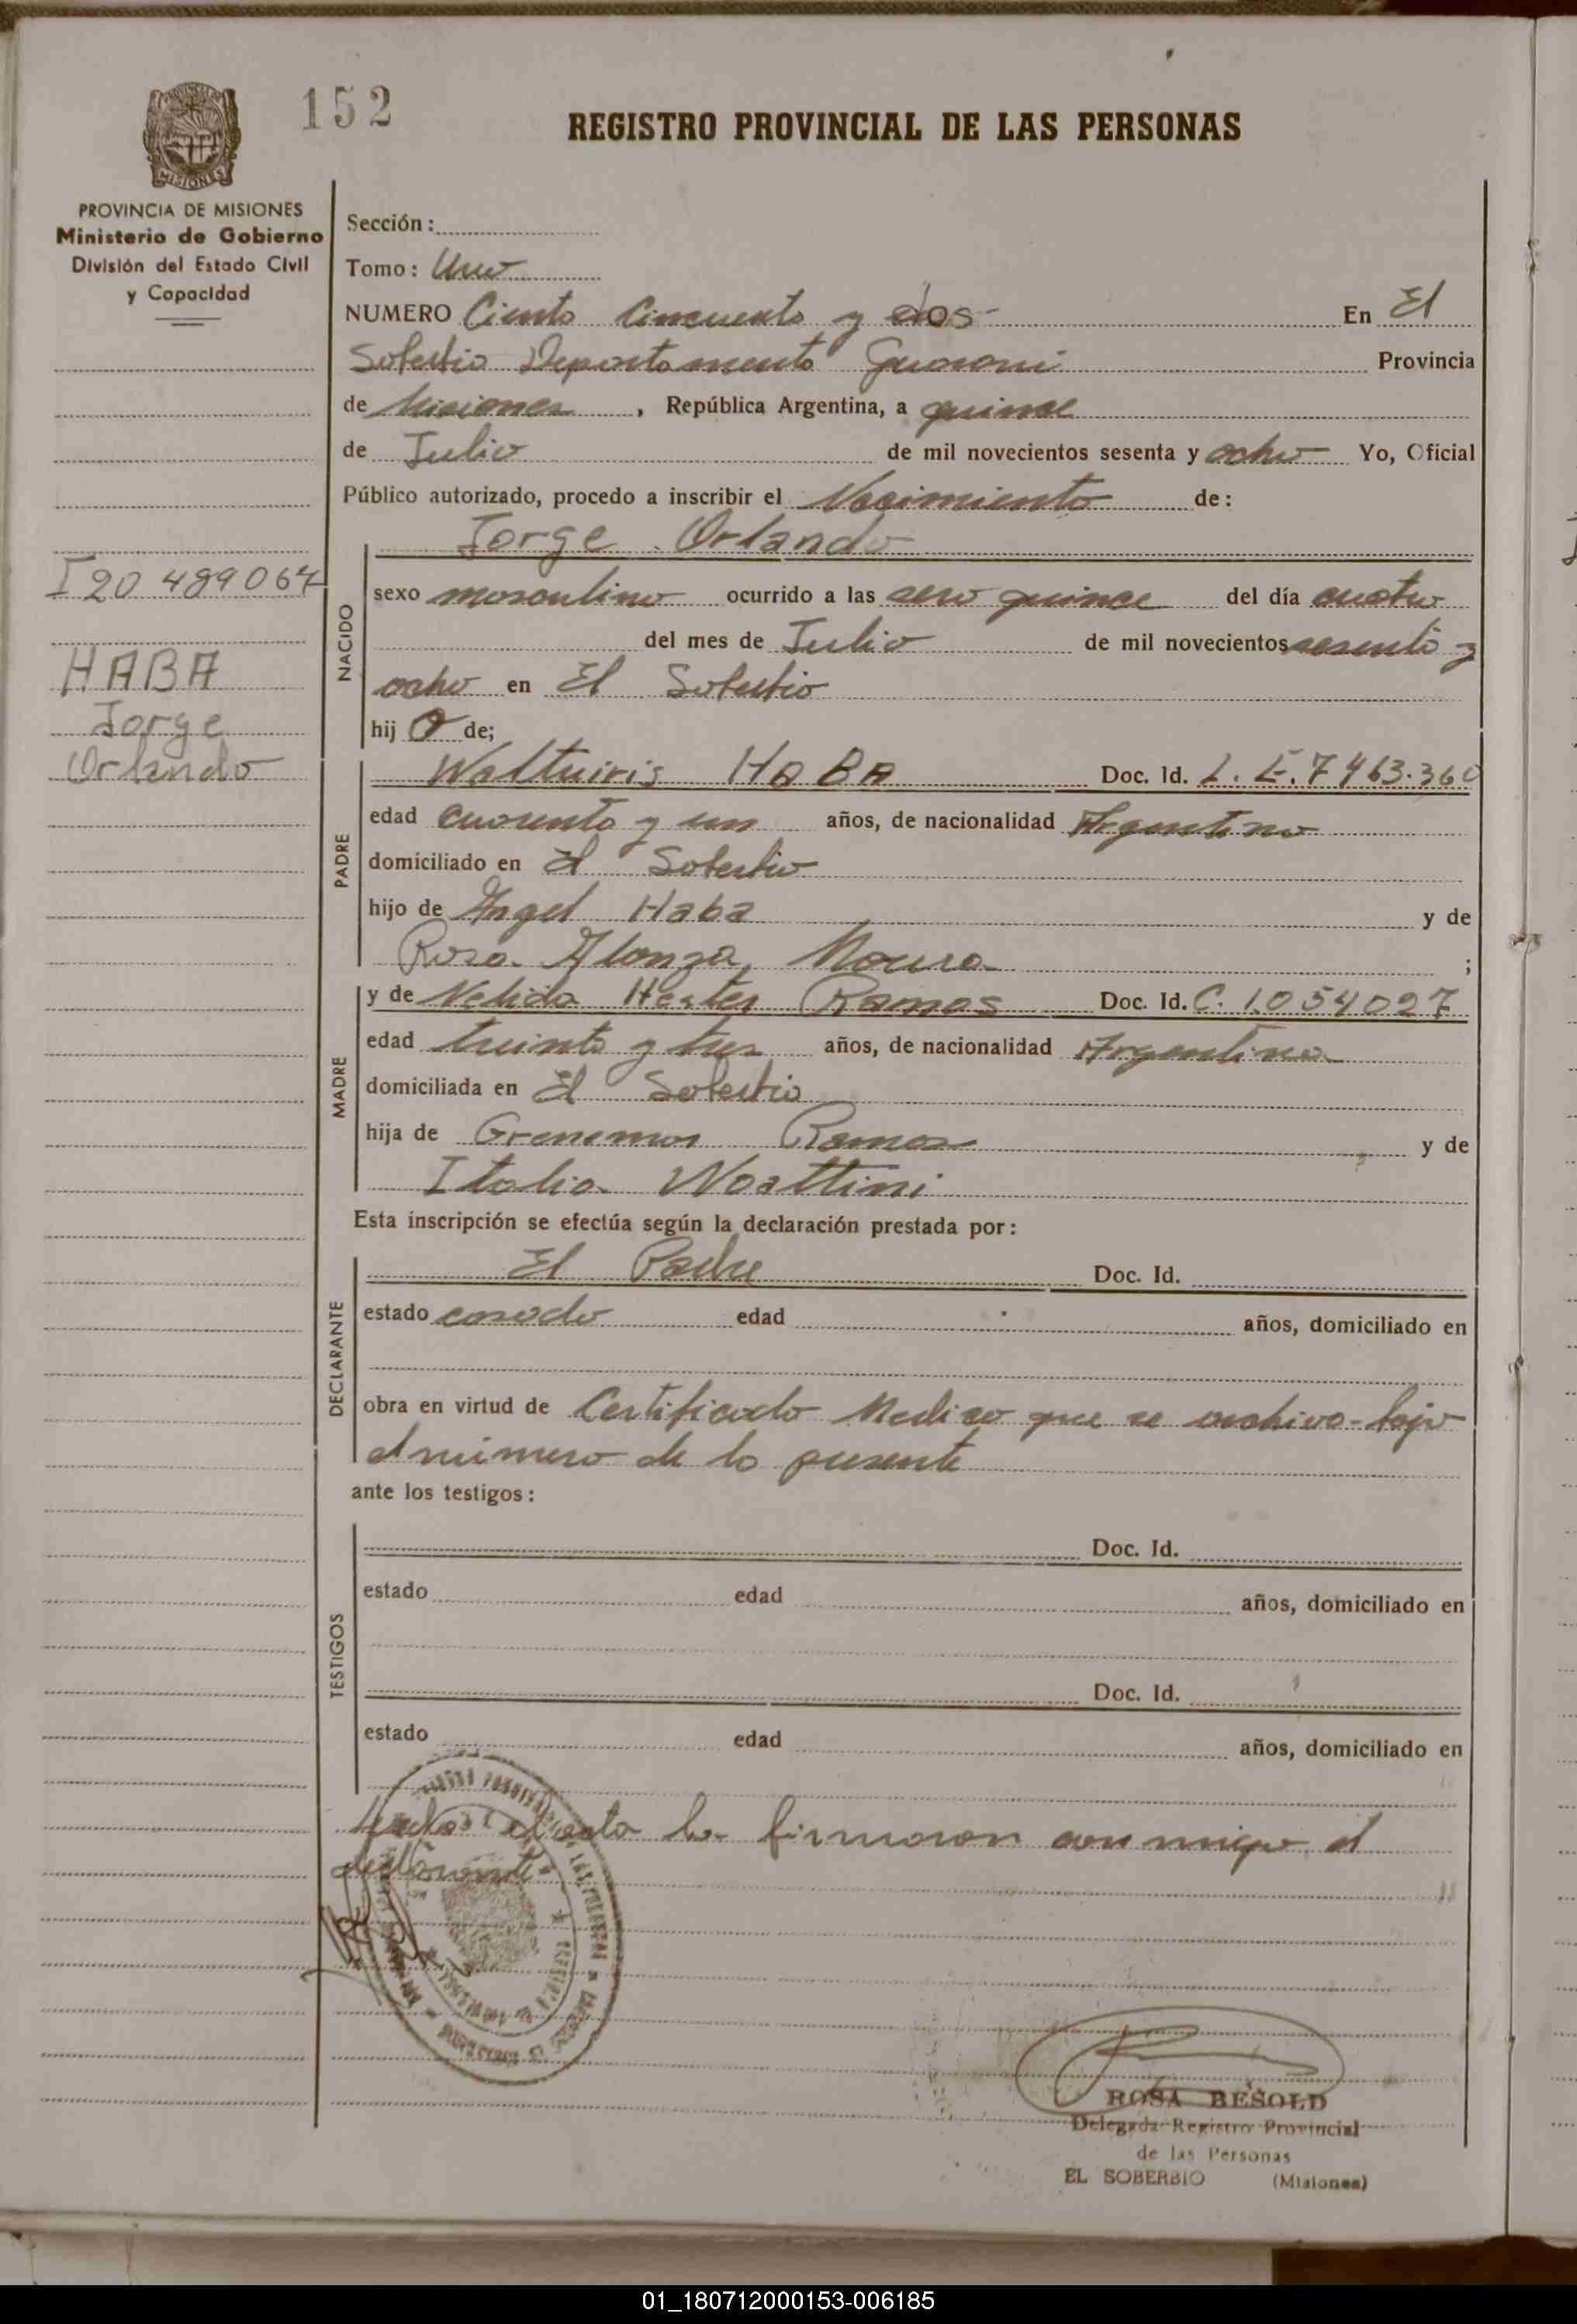 152
REGISTRO PROVINCIAL DE LAS PERSONAS
PROVINCIA DE MISIONES
Ministerio de Gobierno
División del Estado Civil
y Capacidad
I 20 489064
HABA
Jorge
Orlando
Sección:
Tomo: Uno
NUMERO Ciento Cincuenta y dos- En El
Soberbio Departamento Guarani Provincia
de Misiones, República Argentina, a quince
de Julio de mil novecientos sesenta y ocho Yo, Oficial
Público autorizado, procedo a inscribir el Nacimiento de:
Jorge Orlando
NACIDO
sexo masculino ocurrido a las cero quince del día cuatro
del mes de Julio de mil novecientos sesenta y
ocho en El Soberbio
hij o de;
PADRE
Waltuiris HABA Doc. Id. L. E. 7463.360
edad cuarenta y un años, de nacionalidad Argentino
domiciliado en El Soberbio
hijo de Angel Haba y de
Rosa Moura ;
MADRE
y de Nelida Hester Ramos Doc. Id. C. 1.054027
edad treinta y tres años, de nacionalidad Argentina
domiciliada en El Soberbio
hija de Ramos y de
Italia
Esta inscripción se efectúa según la declaración prestada por:
DECLARANTE
El Padre Doc. Id.
estado casado edad años, domiciliado en
obra en virtud de Certificado Medico que se archiva bajo
el numero de la presente
ante los testigos:
TESTIGOS
Doc. Id.
estado edad años, domiciliado en
Doc. Id.
estado edad años, domiciliado en
el acta la firmaron conmigo el
declarante
ROSA BESOLD
Delegada Registro Provincial
de las Personas
EL SOBERBIO (Misiones)
01_180712000153-006185